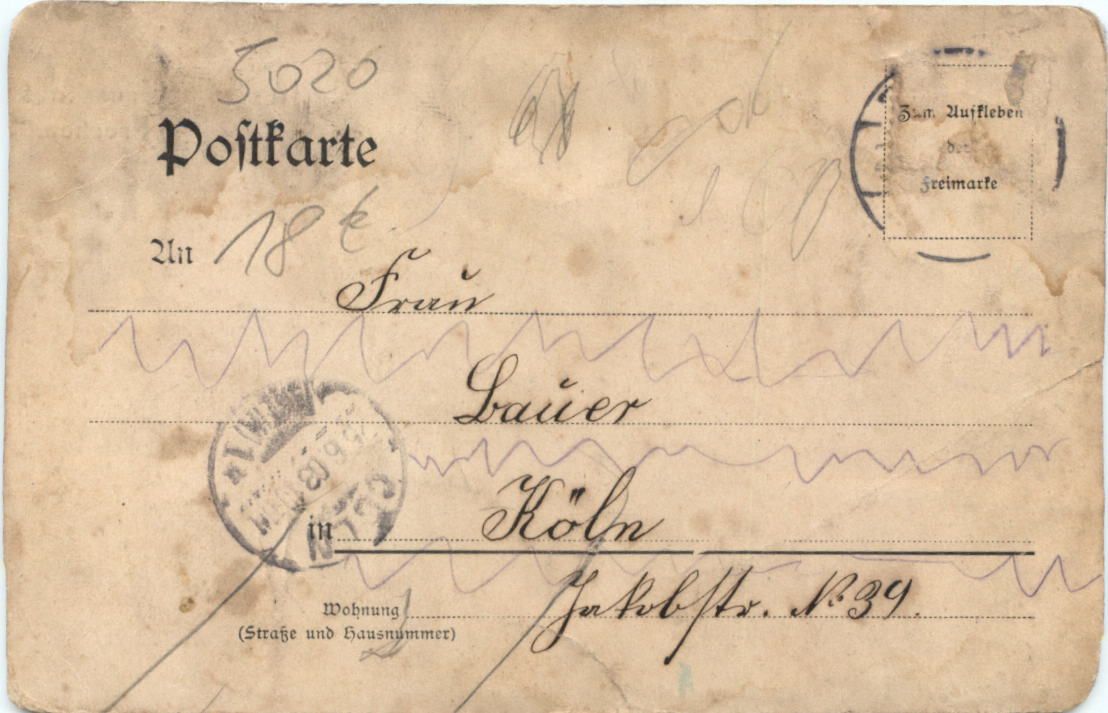 5020
Postkarte
Zum Aufkleben
der
Freimarke
An
18 €.
Frau
Bauer
CÖLN
in Köln
Wohnung Jakobstr. No. 39.
(Straße und Hausnummer)